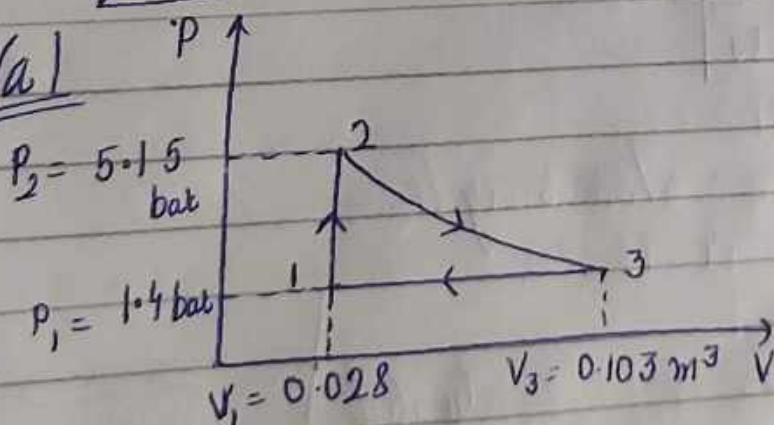 (a)
P
2
P₂ = 5.15
bat
1
3
P₁ = 1.4 bat
V₁ = 0.028
V₃ = 0.103 m³
V